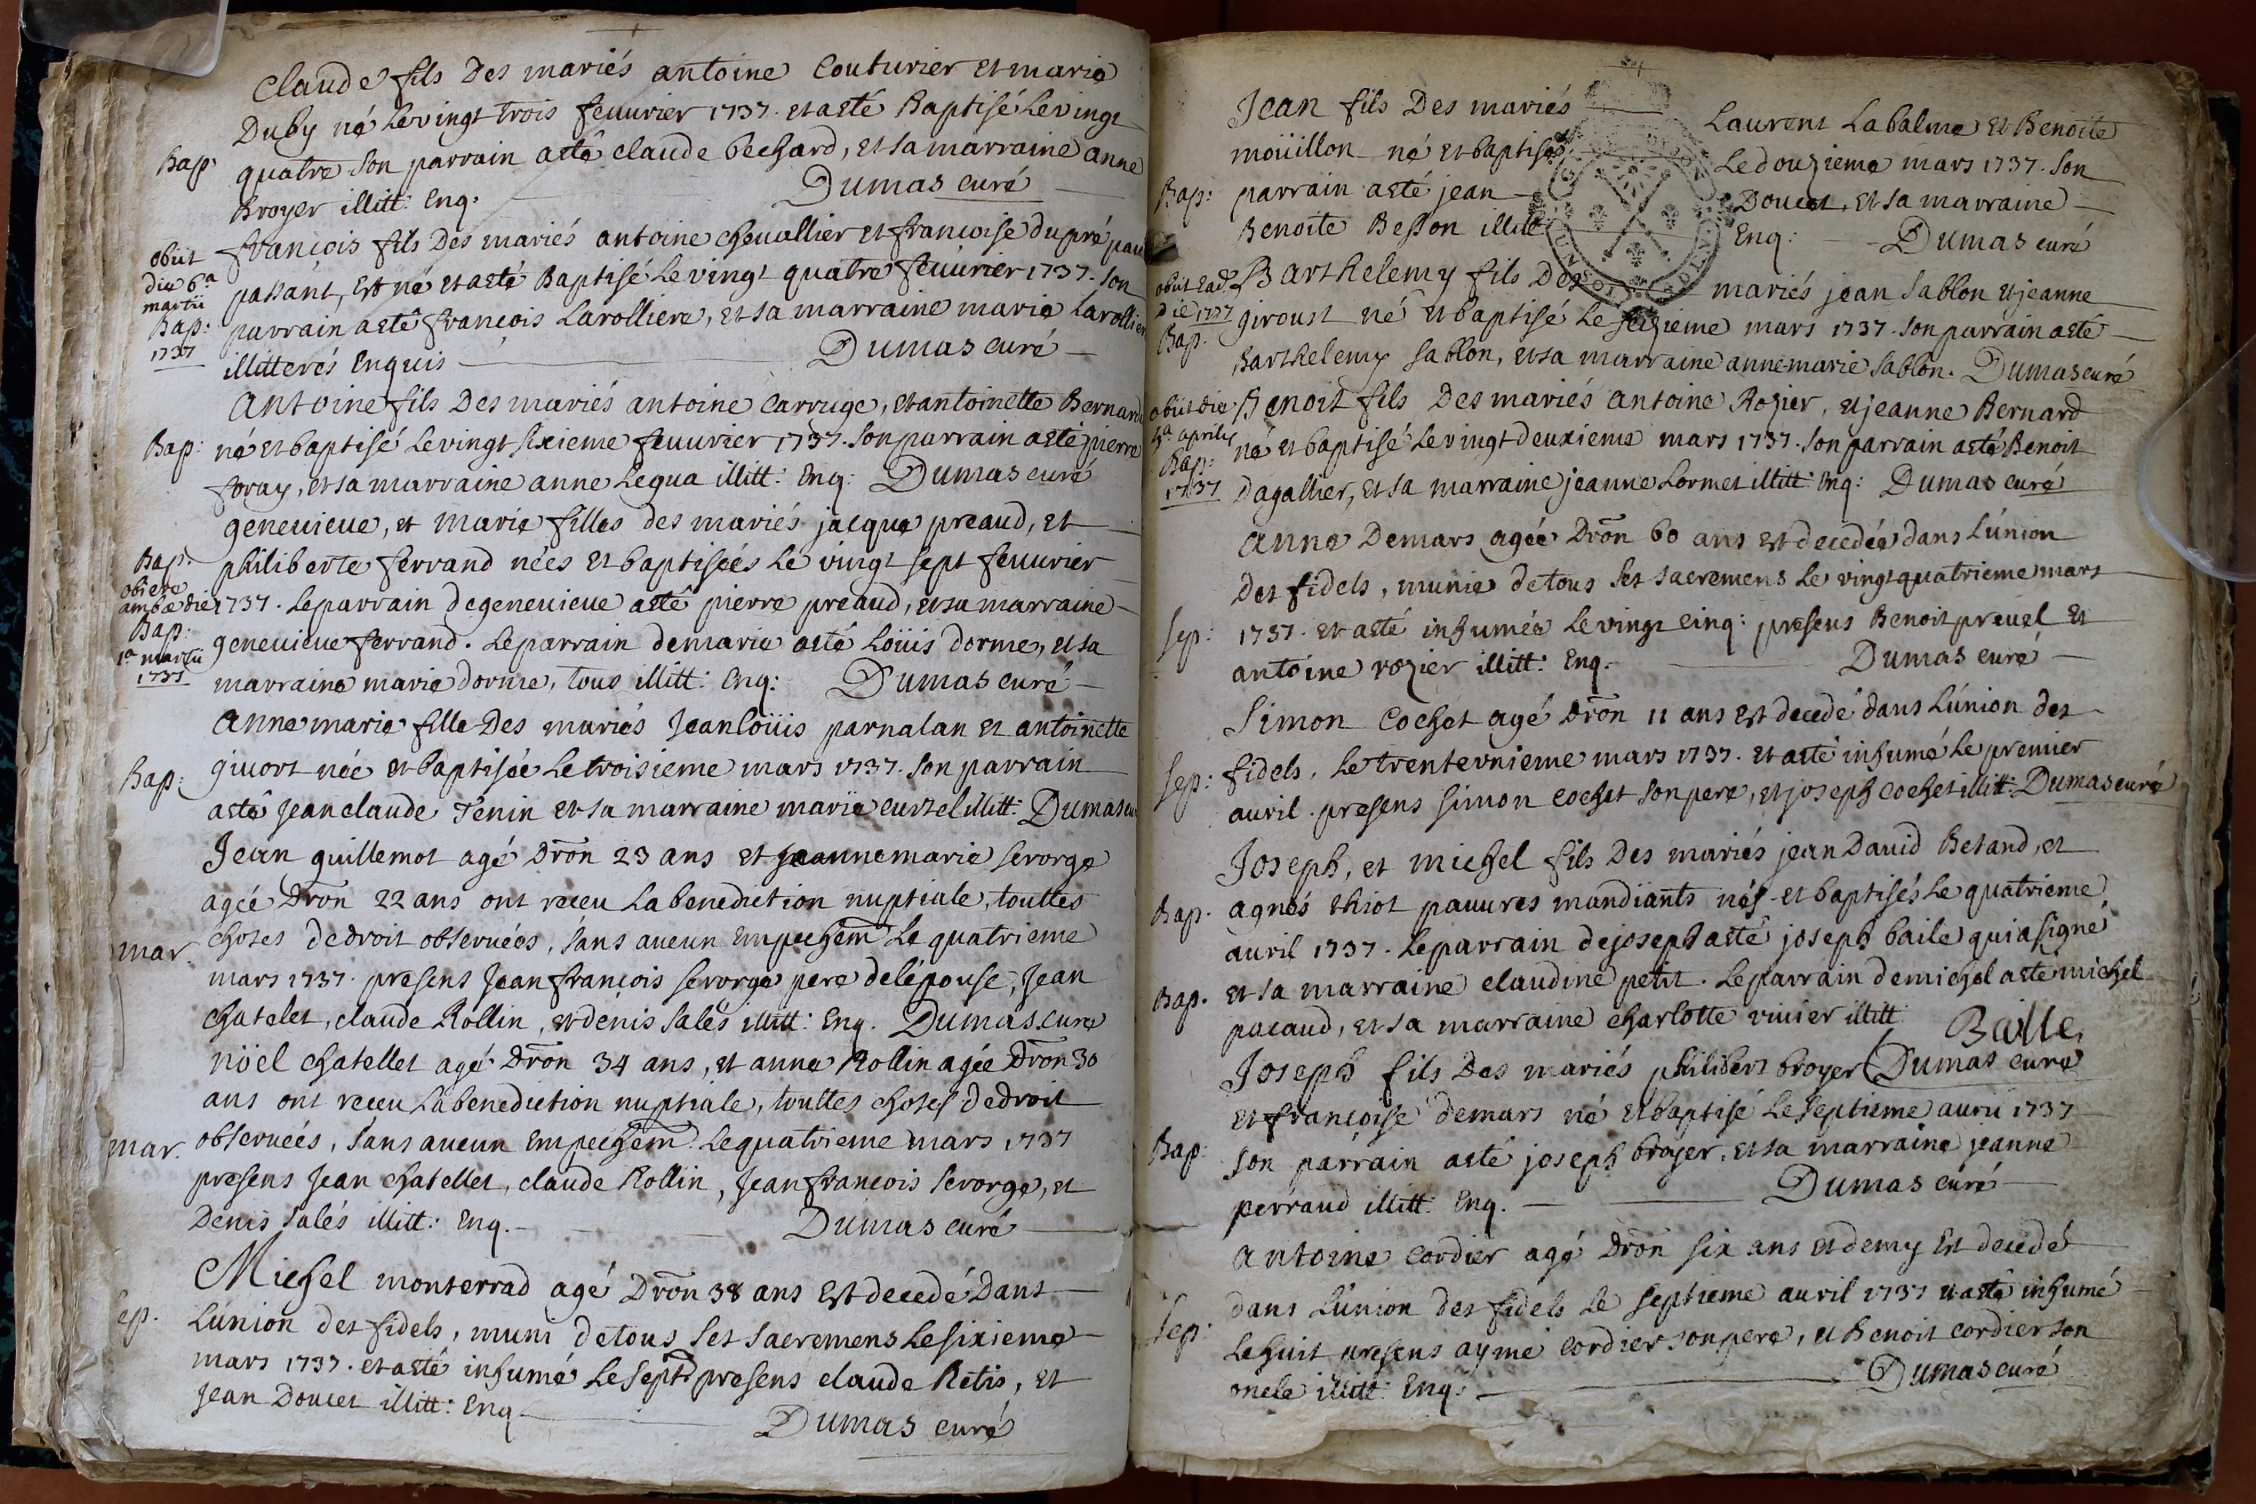 Claude fils Des mariés antoine Couturier et marie
Duby né Le vingt trois feuurier 1737. et a esté Baptisé Le vingt
Bap: quatre son parrain a esté claude bechard, et sa marraine anne
Broyer illitt: Enq: Dumas curé
obiit die 6a martii Bap: 1737
françois fils Des mariés antoine cheuallier et francoise dupré pau
passant, est né et a esté Baptisé Le vingt quatre feuurier 1737. son
parrain a esté françois Larolliere, et sa marraine marie Larollier
illitterés Enquis Dumas curé
Antoine fils Des mariés antoine Carruge, et antoinette Bernard
Bap: né et baptisé Le vingt sixieme feuurier 1737. son parrain a esté pierre
foray, et sa marraine anne Lequa illitt: Enq: Dumas curé
geneuieue, et Marie filles des mariés jacque preaud, et
Bap: philiberte ferrand nées et baptisées Le vingt sept feuurier
obiere ambæ die
1737. Le parrain de geneuieue a esté pierre preaud, et sa marraine
Bap:
geneuieue ferrand. Le parrain de marie a esté Loüis dorme, et sa
1a martii 1737
marraine marie dorme, tous illitt: Enq: Dumas curé
Anne marie fille Des mariés Jean Loüis parnalan et antoinette
Bap: giuort née et baptisée Le troisieme mars 1737. son parrain
a esté Jean claude Tenin et sa marraine marie curtel illitt: Dumas cu
Jean guillemot agé Dron 23 ans et Jeanne marie serorge
agée Dron 22 ans ont receu La benediction nuptiale, touttes
mar. choses de droit obseruées, sans aucun Empechem Le quatrieme
mars 1737. presens Jean françois serorge pere de Lépouse, Jean
chatelet, claude Rollin, et denis Salés illitt: Enq. Dumas curé
nöel chatellet agé Dron 34 ans, et anne Rollin agée Dron 30
ans ont receu La benediction nuptiale, touttes choses de droit
mar. obseruées, sans aucun Empechem Le quatrieme mars 1737
presens Jean chatellet, claude Rollin, Jean françois serorge, et
Denis Salés illitt: Enq. Dumas curé
Michel monterrad agé Dron 38 ans Est decedé Dans
Sep. L'union des fidels, muni de tous ses sacremens Le sixieme
mars 1737. et a esté inhumé Le sept presens claude Retis, et
Jean Doucet illitt: Enq. Dumas curé
Jean fils Des mariés Laurent Labalme et Benoite
moüillon né et baptisé Le douzieme mars 1737. son
Bap: parrain a esté jean Doucet, et sa marraine
Benoite Besson illitt: Enq: Dumas curé
obiit ead. die 1737 Bap.
Barthelemy fils Des mariés jean sablon et jeanne
giroust né et baptisé Le seizieme mars 1737. son parrain a esté
Barthelemy sablon, et sa marraine anne marie sablon. Dumas curé
obiit die 5a aprilis Bap: 1737
Benoit fils Des mariés antoine Rozier, et jeanne Bernard
né et baptisé Le vingt deuxieme mars 1737. son parrain a esté Benoit
Dagallier, et sa marraine jeanne Lormet illitt: Enq: Dumas curé
Anne Demars agée Dron 60 ans est decedée dans L'union
Des fidels, munie de tous ses sacremens Le vingt quatrieme mars
sep: 1737. et a esté inhumée Le vingt cinq: presens Benoit preuel et
antoine rozier illitt: Enq. Dumas curé
Simon cochet agé Dron 11 ans est decedé dans L'union des
sep: fidels, Le trente vnieme mars 1737. et a esté inhumé Le premier
auril. presens simon cochet son pere, et joseph cochet illitt: Dumas curé
Joseph, et michel fils Des mariés jean Dauid Betand, et
Bap. agnés thiot pauures mandiants nés et baptisés Le quatrieme
auril 1737. Le parrain de joseph a esté joseph baile qui a signé
Bap. et sa marraine claudine petit. Le parrain de michel a esté michel
pacaud, et sa marraine charlotte viuier illitt Baille
Joseph fils Des mariés philibert broyer Dumas curé
et françoise demars né et baptisé Le septieme auril 1737
Bap: son parrain a esté joseph broyer, et sa marraine jeanne
perraud illitt: Enq. Dumas curé
Antoine cordier agé Dron six ans et demy Est decedé
dans L'union des fidels Le septieme auril 1737 et a esté inhumé
sep: Le huit presens aymé cordier son pere, et Benoit cordier son
oncle illitt: Enq: Dumas curé